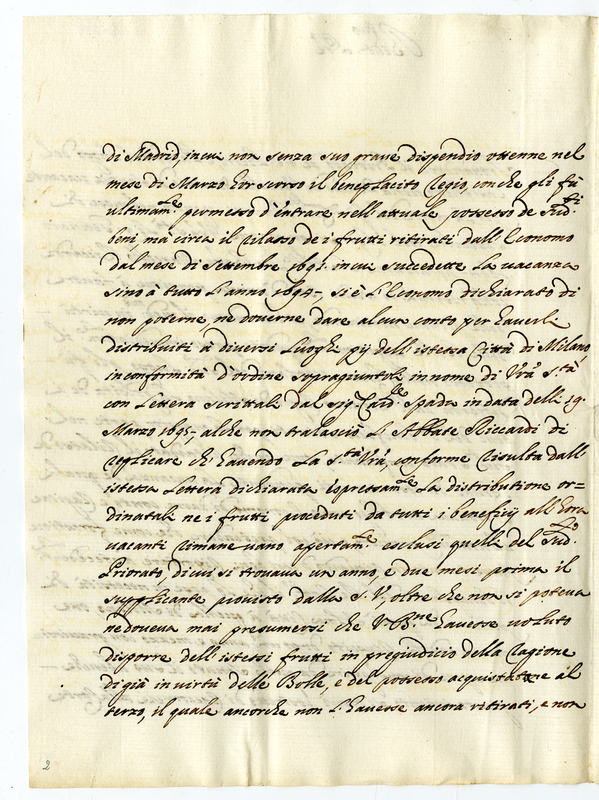 di Madrid, in cui non senza suo grave dispendio ottenne nel
mese di Marzo hor scorso il beneplacito Regio, con che gli fù
ultimam.te permesso d'entrare nell'attuale possesso de Sud.ti
beni, ma circa il rilasso de i frutti ritirati dall'Economo
dal mese di Settembre 1691. in cui succedette la vacanza
sino à tutto l'anno 1694., si è l'Economo dichiarato di
non poterne, ne doverne dare alcun conto per haverli
distribuiti à diversi Luoghi pij dell'istessa Città di Milano,
in conformità d'ordine sopragiuntoli in nome di Vrã S.tà
con Lettera scrittali dal Sig.r Card.le Spada in data delli 19.
Marzo 1695., al che non tralasciò l'Abbate Riccardi di
replicare ch'havendo la S.tà Vrã, conforme risulta dall'
istessa Lettera dichiarata espressam.te la distributione or=
dinatali ne i frutti proceduti da tutti i beneficij all'hora
vacanti rimanevano apertam.te esclusi quelli del Sud.o
Priorato, di cui si trovava un anno, e due mesi prima il
supplicante provisto dalla S. V., oltre che non si poteva
ne doveva mai presumersi che V. B.ne havesse voluto
disporre dell'istessi frutti in pregiudicio della ragione
di già in virtù delle Bolle, e del possesso acquistatone al
terzo, il quale ancorche non l'havesse ancora ritirati, e non
2